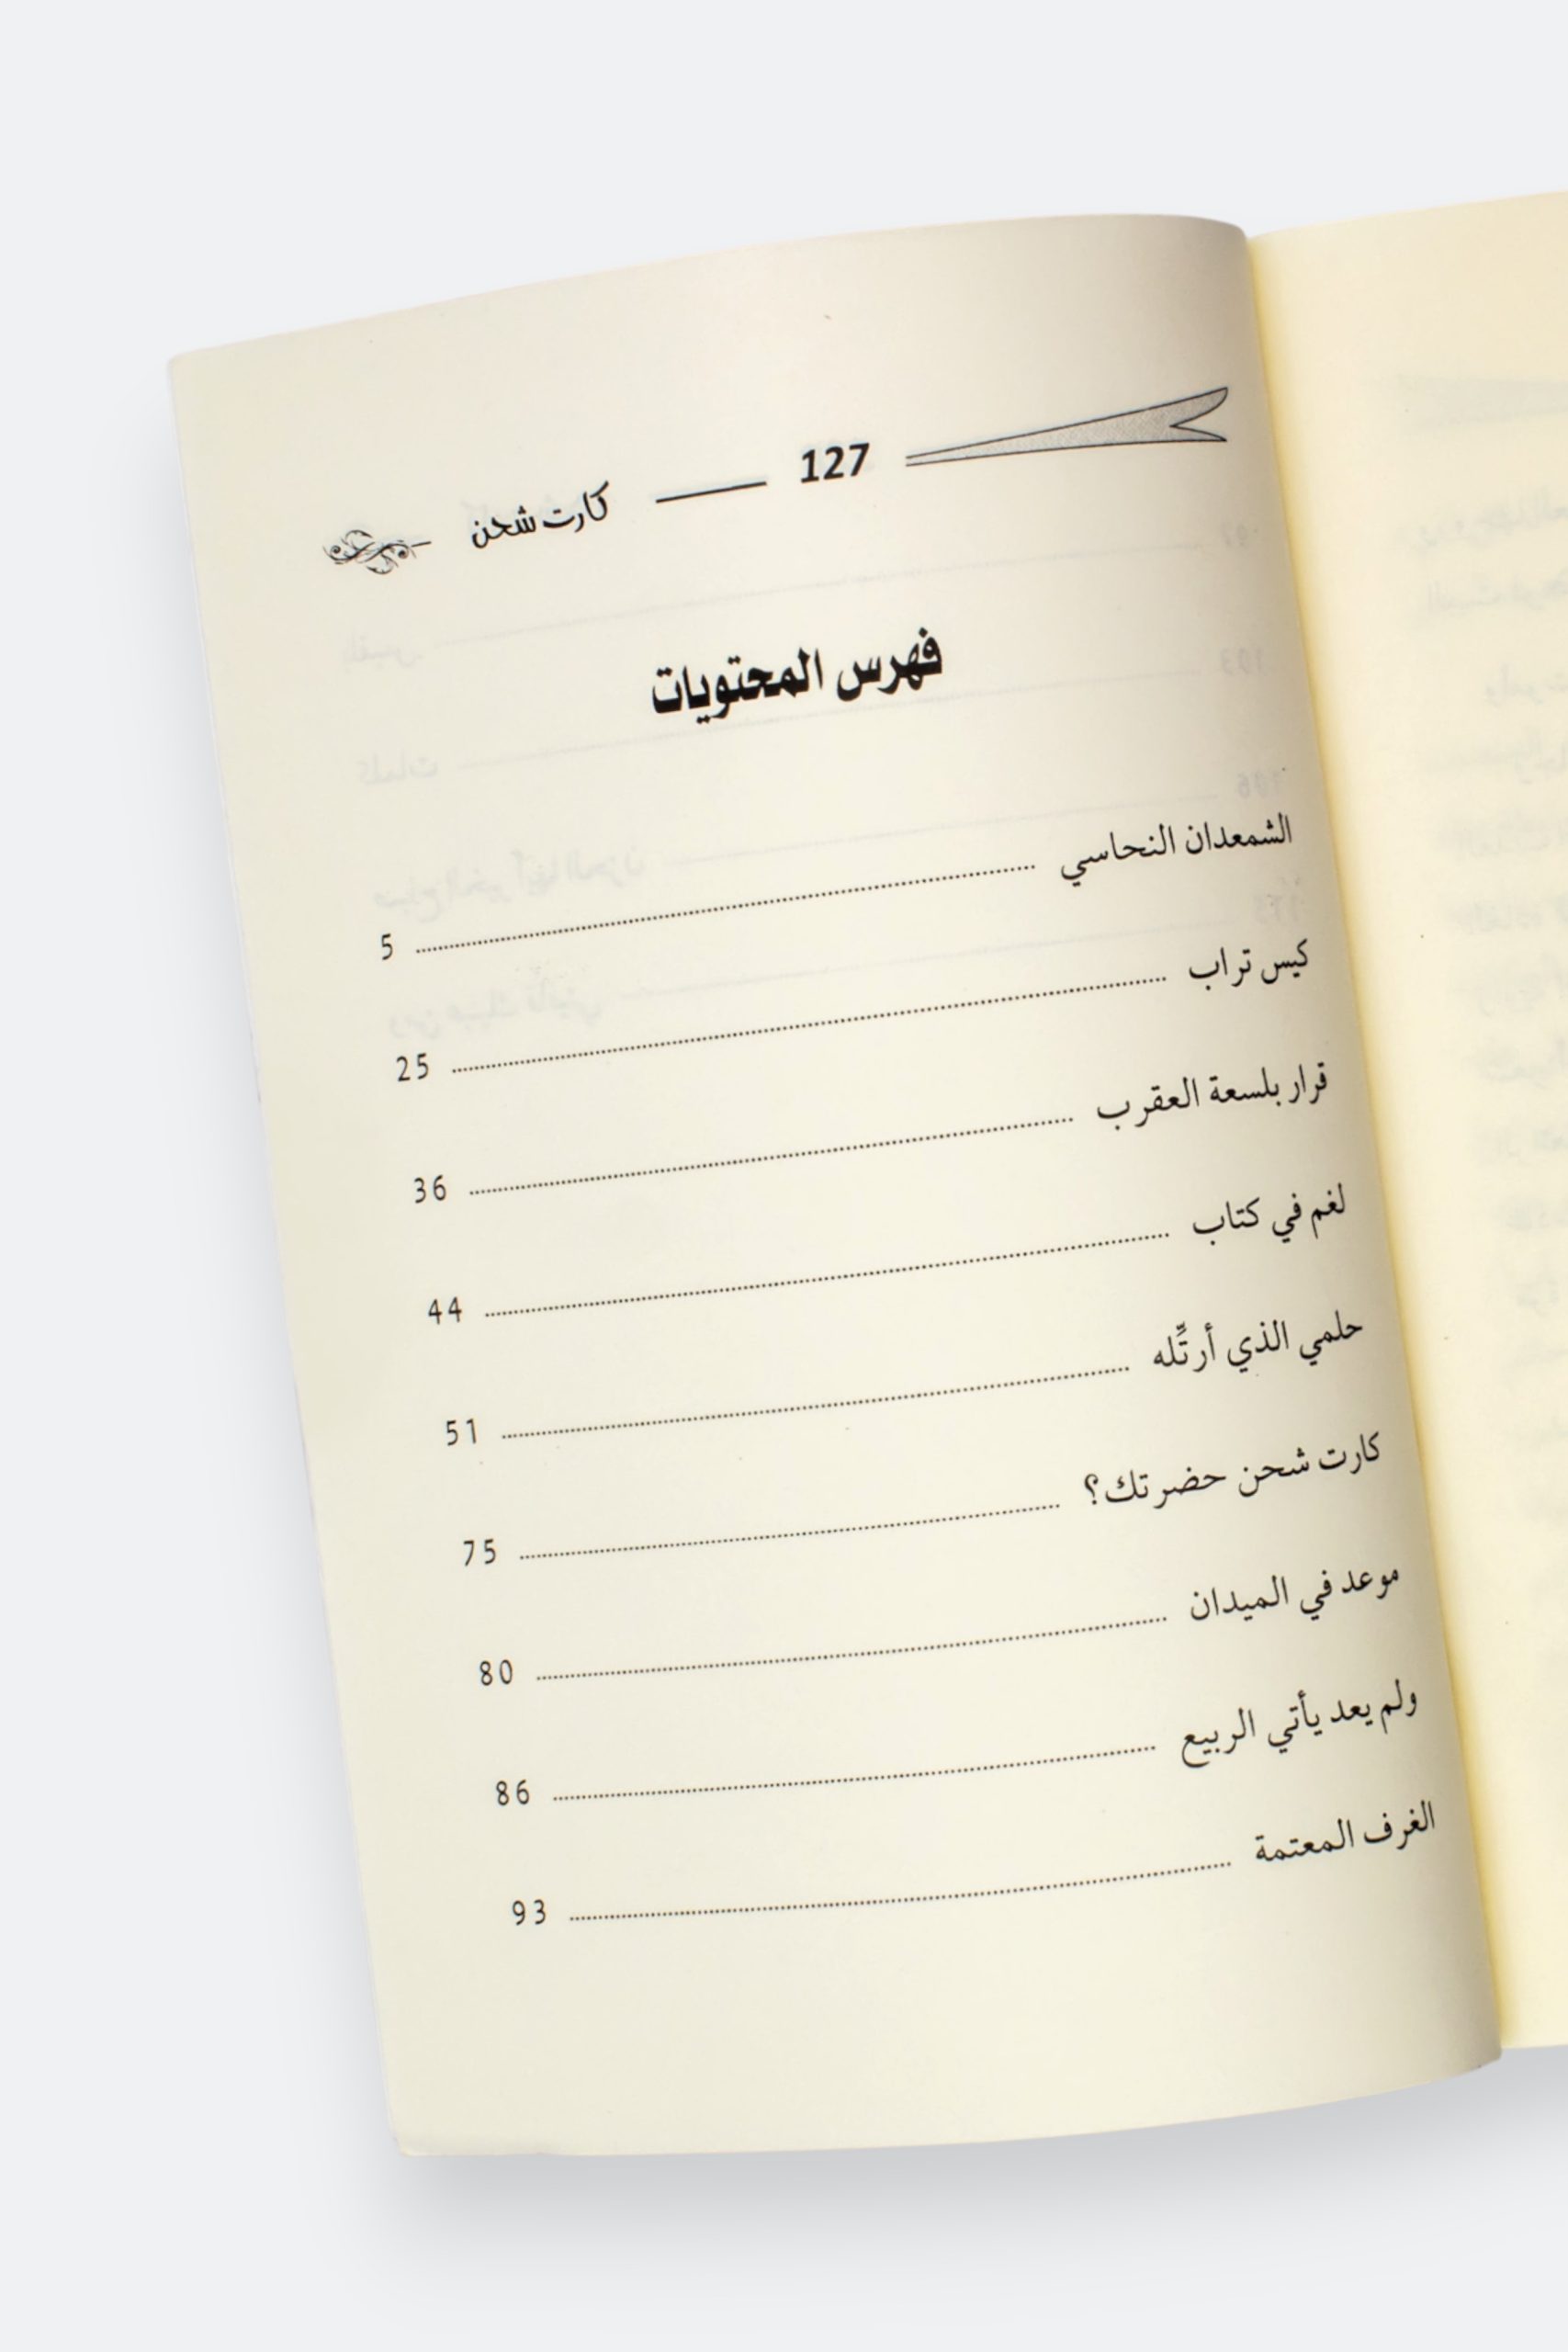 127 كارت شحن
فهرس المحتويات
الشمعدان النحاسي 5
كيس تراب 25
قرار بلسعة العقرب 36
لغم في كتاب 44
حلمي الذي أرتِّله 51
كارت شحن حضرتك؟ 75
موعد في الميدان 80
ولم يعد يأتي الربيع 86
الغرف المعتمة 93